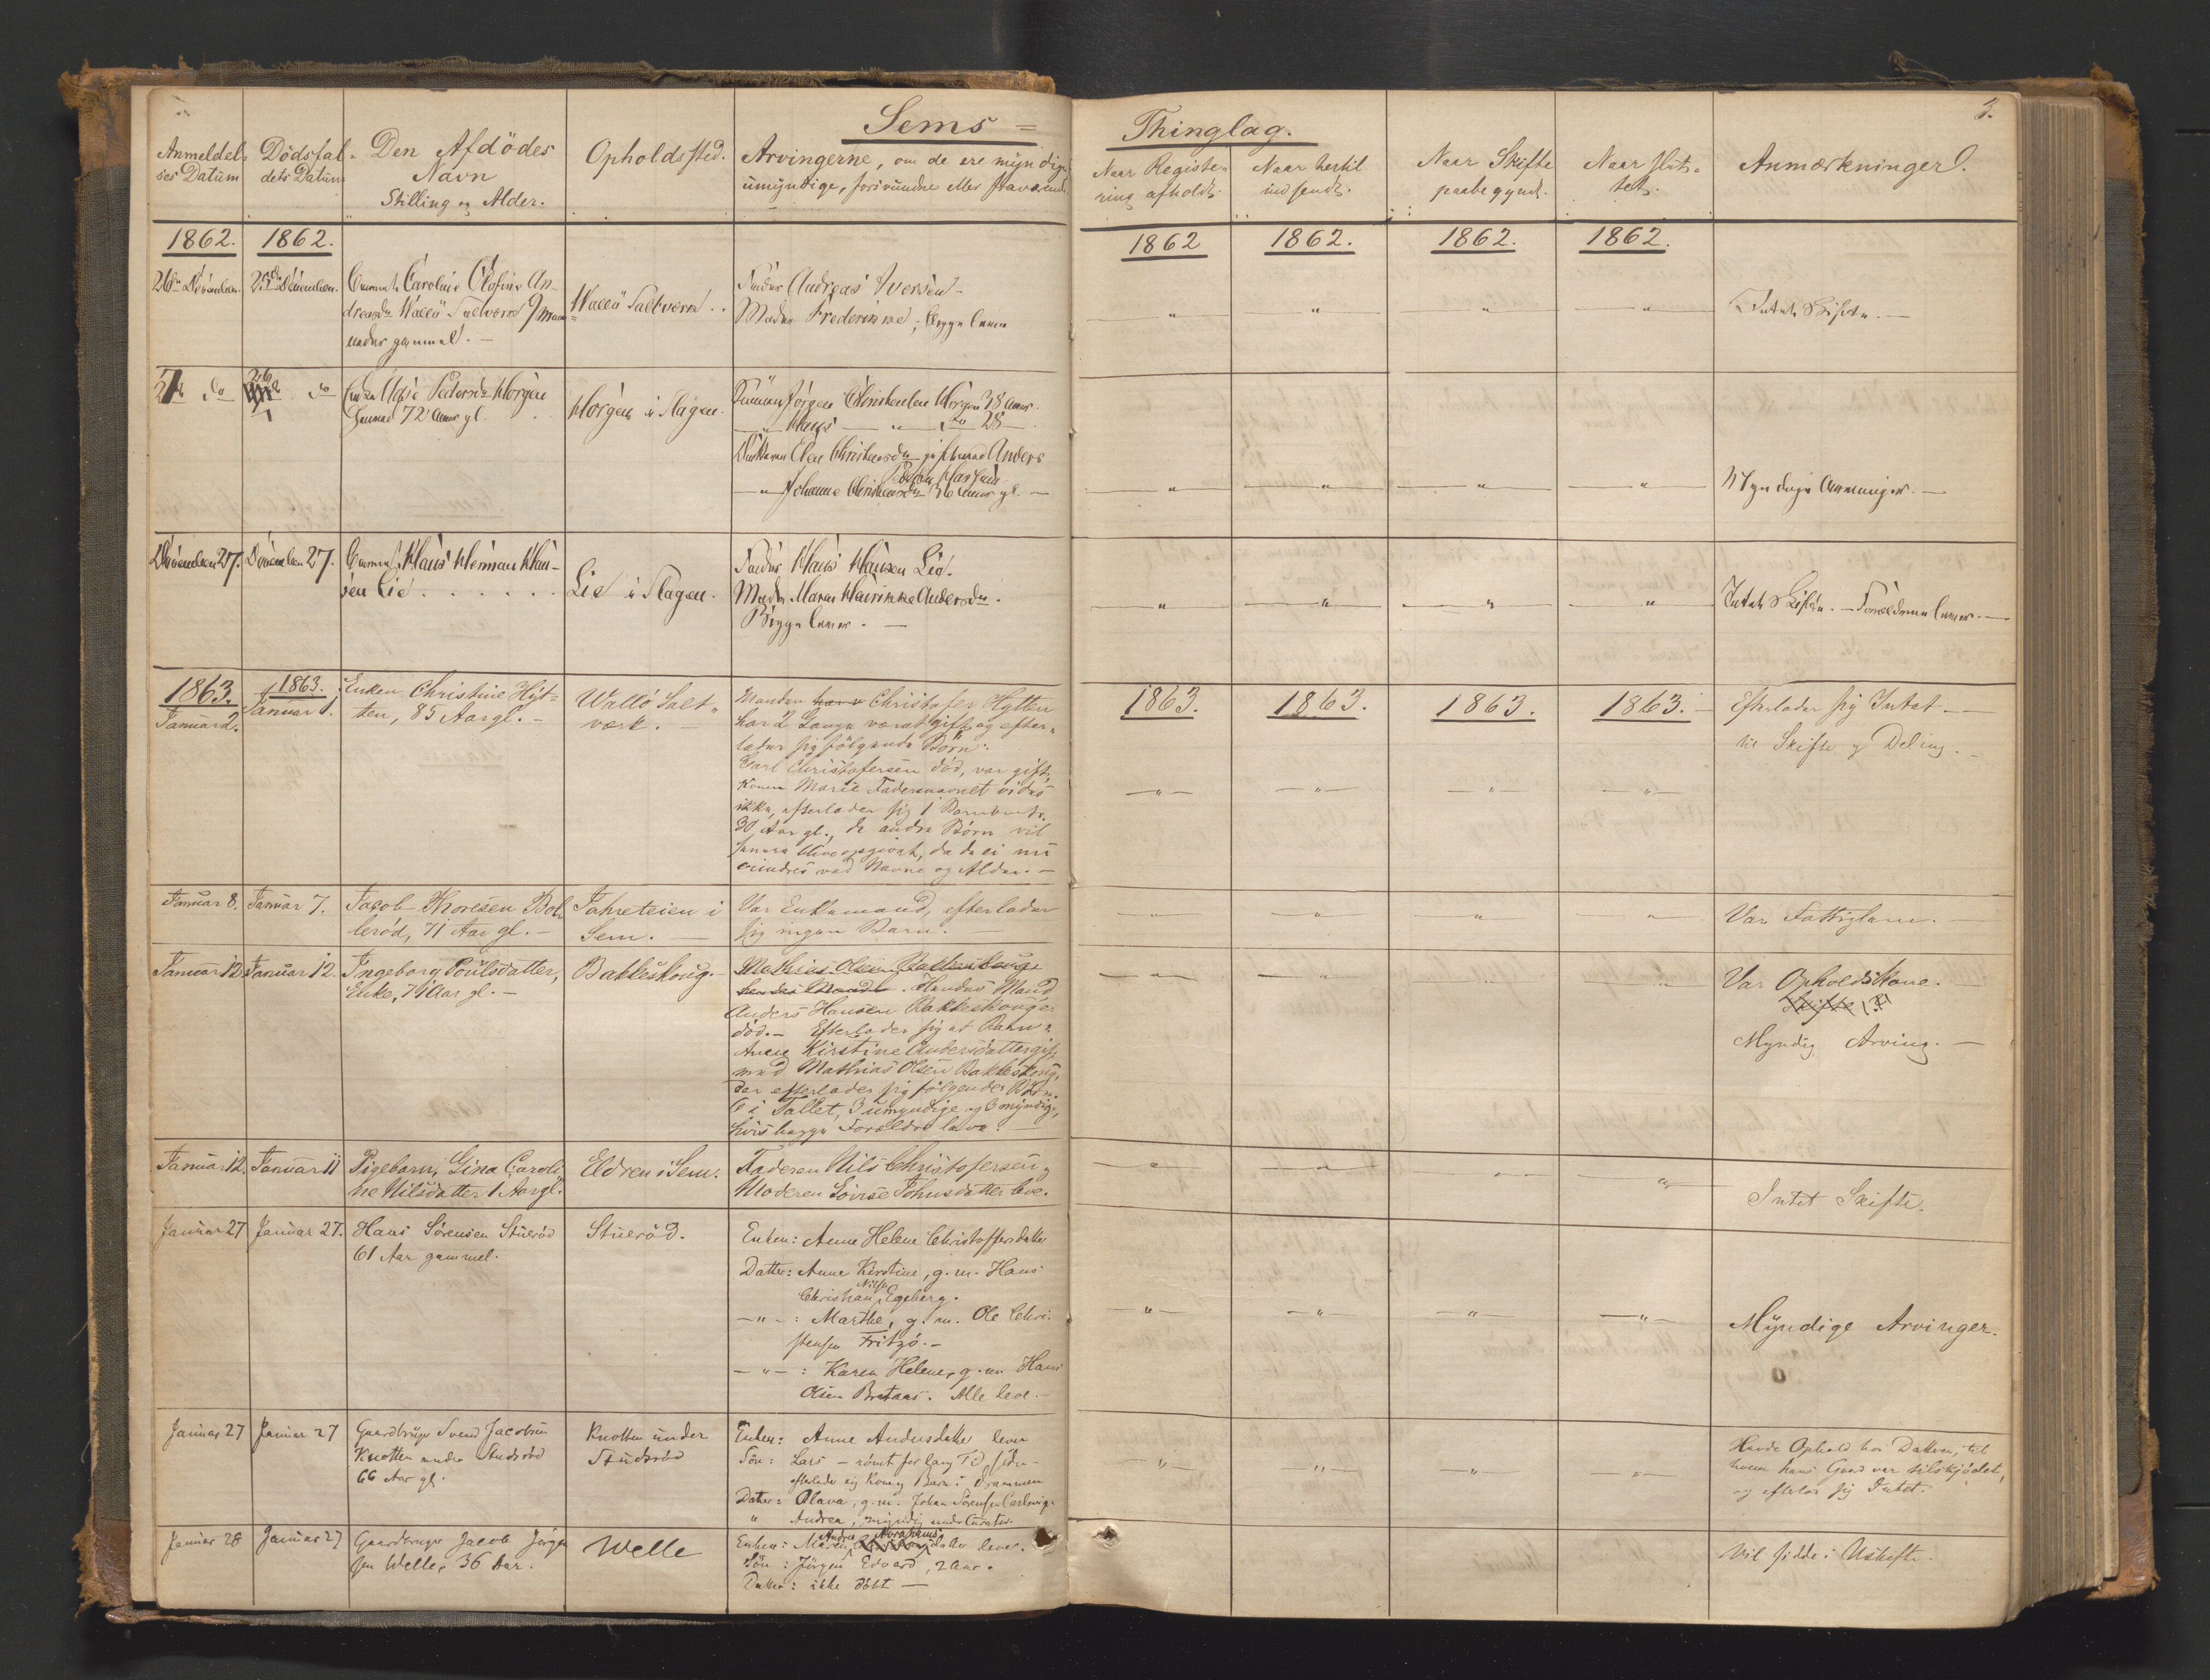 Sems =
Thinglag.
3.
Anmeldel-
ses Datum
Dödsfal-
dets Datum
Den Afdödes
Navn
Stilling og Alder.
Opholdssted.
Arvingerne, om de ere myndige,
umyndige, forsvundne eller fraværende
Naar Registe-
ring afholdt.
Naar hertil
indsendt.
Naar Skifte
paabegyndt.
Naar slut-
tet.
Anmærkninger.
1862. 1862.
1862 1862. 1862. 1862.
Caroline Olofine An-
dreasdtr Walló Saltværk 9 Maa-
neder gammel.
Walló Saltværk
Fader Andreas Iversen
Moder Frederikke; Begge lever
Intet Skifte.
26
Pedersdtr Horgen
72 Aar gl.
Horgen i Slagen.
Jörgen Christensen Horgen 38 Aar.
Hans 28
Datteren Elen Christensdtr gift med Anders
Johanne Christensdtr 36 Aar gl.
Myndige Arvinger.
Deсember 27. December 27.
Hans Herman Han-
sen Lie
Lie i Slagen.
Fader Hans Hansen Lie.
Moder Maren Andersdtr.
Begge lever.
Intet Skifte. - Forældrene lever.
1863. 1863.
1863. 1863. 1863. 1863.
Januar 2. Januar 1.
Enken Christine Hyt-
ten, 85 Aar gl. -
Walló Salt-
værk.
Manden Christofer Hytten
har 2 Gange været gift og efter-
lader sig fölgende Börn:
Carl Christofersen död, var gift,
Konen Marie Fadernavnet vides
ikke, efterlader sig 1 Barn
30 Aar gl., de andre Börn vil
senere blive opgivet, da de ei nu
erindres ved Navne og Alder. -
Efterlader sig Intet
til Skifte og Deling.
Januar 8. Januar 7.
Jacob Thoresen Bol-
leröd, 71 Aar gl. -
Jahreteien i
Sem.
Var Enkemand, efterlader
sig ingen Barn.
Var Fattiglem.
Januar 12. Januar 12.
Ingeborg Poulsdatter,
Enke, 74 Aar gl. -
Bakkeskoug.
Mathias Olsen Bakkeskoug
hendes Mand. Hendes Mand
Anders Hansen Bakkeskouge
död. - Efterlader sig et Barn:
Anne Kirstine Andersdatter gift
med Mathias Olsen Bakkeskoug,
der efterlader sig fölgende Börn.
6 i Tallet, 3 umyndige og 3 myndige,
hvis begge Forældre leve.
Var Opholdskone.
Skifte
Myndig Arving.
Januar 12. Januar 11
Pigebarn, Gina Caroli-
ne Nilsdatter 1 Aar gl.
Eldren i Sem.
Faderen Nils Christofersen,
Moderen Lovise Johnsdatter leve.
Intet Skifte.
Januar 27 Januar 27.
Hans Sörensen Stueröd
61 Aar gammel.
Stueröd.
Enken: Anne Helene Christoffersdatter
Datter: Anne Kirstine, g. m. Hans
Nilsen
Christian Egeberg.
- " - : Marthe, g. m. Ole Chri-
stensen Fritzö. -
- " - : Karen Helene, g. m. Hans
Olsen Bretaas. Alle leve. -
Myndige Arvinger.
Januar 27 Januar 27
Gaardbruger Svend Jacobsen
Knotten under Studsröd
66 Aar gl.
Knotten under
Studsröd
Enken: Anne Andersdatter lever
Sön: Lars - römt for lang Tid siden -
efterlader sig Kone og Barn i Drammen
Datter: Olava, g. m. Johan Sörensen
" Andrea, myndig under Curator.
Havde Ophold hos Datteren, til
hvem hans Gaard var tilskjödet,
og efterlod sig Intet.
Januar 28 Januar 27
Gaardbruger Jacob Jörgen-
sen Welle, 36 Aar.
Welle
Andrea Abrahams
Enken: Maren datter lever.
Sön: Jörgen Edvard, 2 Aar.
Datter: ikke döbt -
Vil sidde i Uskifte.